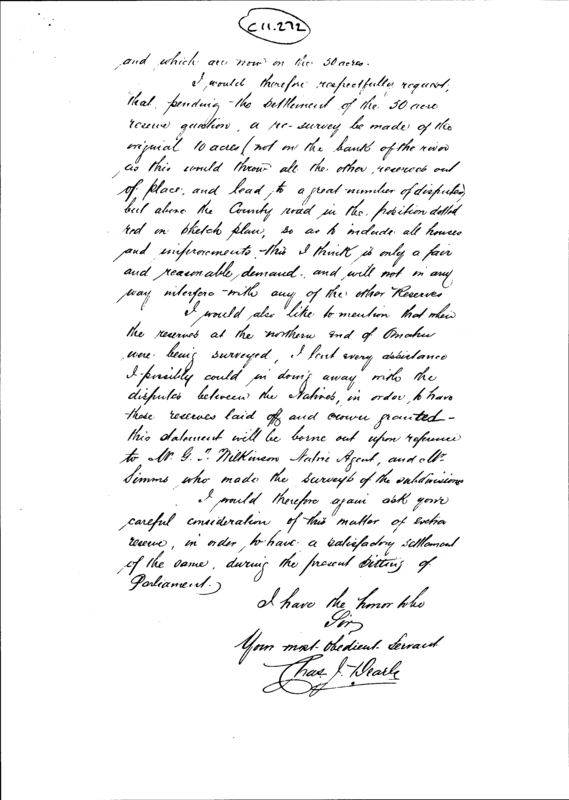 C 11.272
and which are now on the 30 acres.
I would therefore respectfully request,
that, pending the settlement of the 30 acre
reserve question, a re-survey be made of the
original 10 acres (not on the bank of the river
as this would throw all the other reserves out
of place, and lead to a great number of disputes)
but above the County road in the position dotted
red on sketch plan, so as to include all houses
and improvements - this I think is only a fair
and reasonable demand and will not in any
way interfere with any of the other Reserves
I would also like to mention that when
the reserves at the northern end of Omahu
were being surveyed, I lent every assistance
I possibly could in doing away with the
disputes between the Natives, in order to have
these reserves laid off and crown granted -
this statement will be borne out upon reference
to Mr. G. T. Wilkinson Native Agent, and Mr
Simms who made the surveys of the subdivisions
I would therefore again ask your
careful consideration of this matter of extra
reserve, in order to have a satisfactory settlement
of the same, during the present sitting of
Parliament.
I have the honor to be
Sir
Your most obedient Servant
Chas J. Dearle